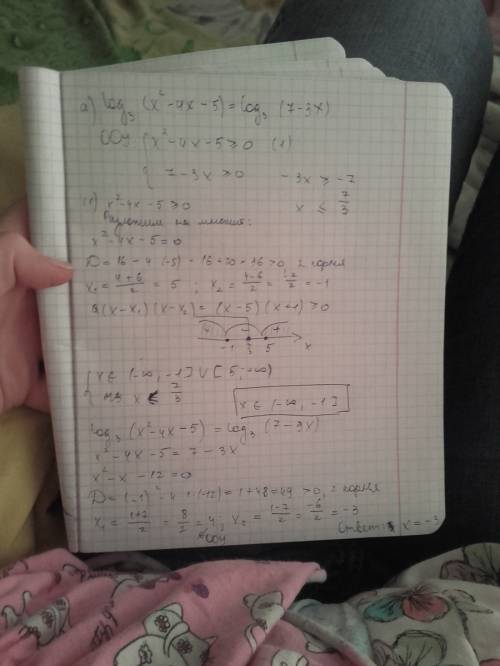 а) log₃ (x² - 4x - 5) = log₃ (7 - 3x)
ОДЗ { x² - 4x - 5 ≥ 0 (1)
{ 7 - 3x ≥ 0 - 3x ≥ -7
(1) x² - 4x - 5 ≥ 0 x ≤ 7/3
Разложим на множ:
x² - 4x - 5 = 0
D = 16 - 4 · (-5) = 16 + 20 = 36 > 0, 2 корня
x₁ = (4+6)/2 = 5 ; x₂ = (4-6)/2 = -2/2 = -1
a(x - x₁)(x - x₂) = (x - 5)(x + 1) > 0
+ - +
-1 7/3 5 x
{ x ∈ (-∞, -1] ∪ [5, +∞)
x ≤ 7/3 x ∈ (-∞, -1]
log₃ (x² - 4x - 5) = log₃ (7 - 3x)
x² - 4x - 5 = 7 - 3x
x² - x - 12 = 0
D = (-1)² - 4 · (-12) = 1 + 48 = 49 > 0, 2 корня
x₁ = (1+7)/2 = 8/2 = 4 ; x₂ = (1-7)/2 = -6/2 = -3
∉ ОДЗ
Ответ: x = -3